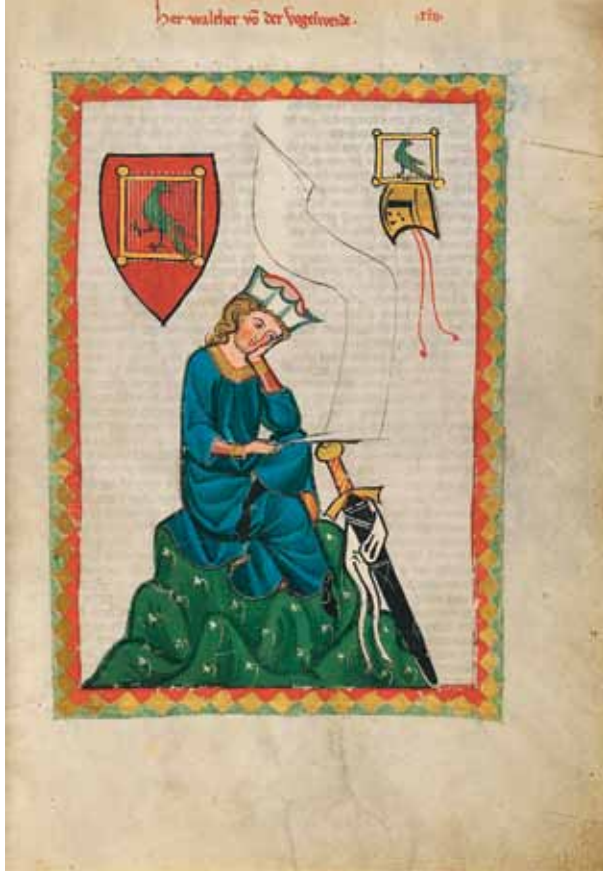 her walther vō der vogelweide. .xlv.